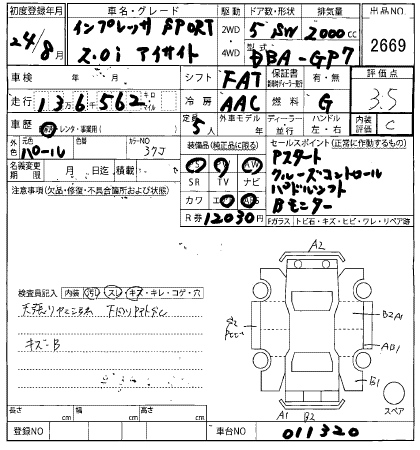 初度登録年月 車名・グレード 駆動 ドア数・形状 排気量 出品NO
24/8月 インプレッサ SPORT 2WD 5 SW 2000cc
2.0i アイサイト 4WD 型式 DBA-GP7 2669
車検 年 月 シフト FAT 保証書 有・無 評価点
走行 13万6千562 キロ マイル 冷房 AAC 燃料 G 3.5
車歴 レンタ・事業用 定員 5人 外車モデル 年 ディーラー 並行 ハンドル 左・右 内装 C
外色 元色 パール カラーNO 37J 装備品(純正品に限る) セールスポイント(正常に動作するもの)
名義変更期限 月 日迄 積載 SR TV ナビ Aスタート
注意事項(欠品・修復・不具合箇所および状態) カワ クルーズコントロール
パドルシフト
Bモニター
R券 12030円 Fガラス トビ石・キズ・ヒビ・ワレ・リペア跡
検査員記入 内装 汚レ・スレ・キズ・キレ・コゲ・穴
キズ-B
A2
B2A1
AB1
B1
A1 B2
スペア
長さ cm 幅 cm 高さ cm
登録NO 車台NO 011320